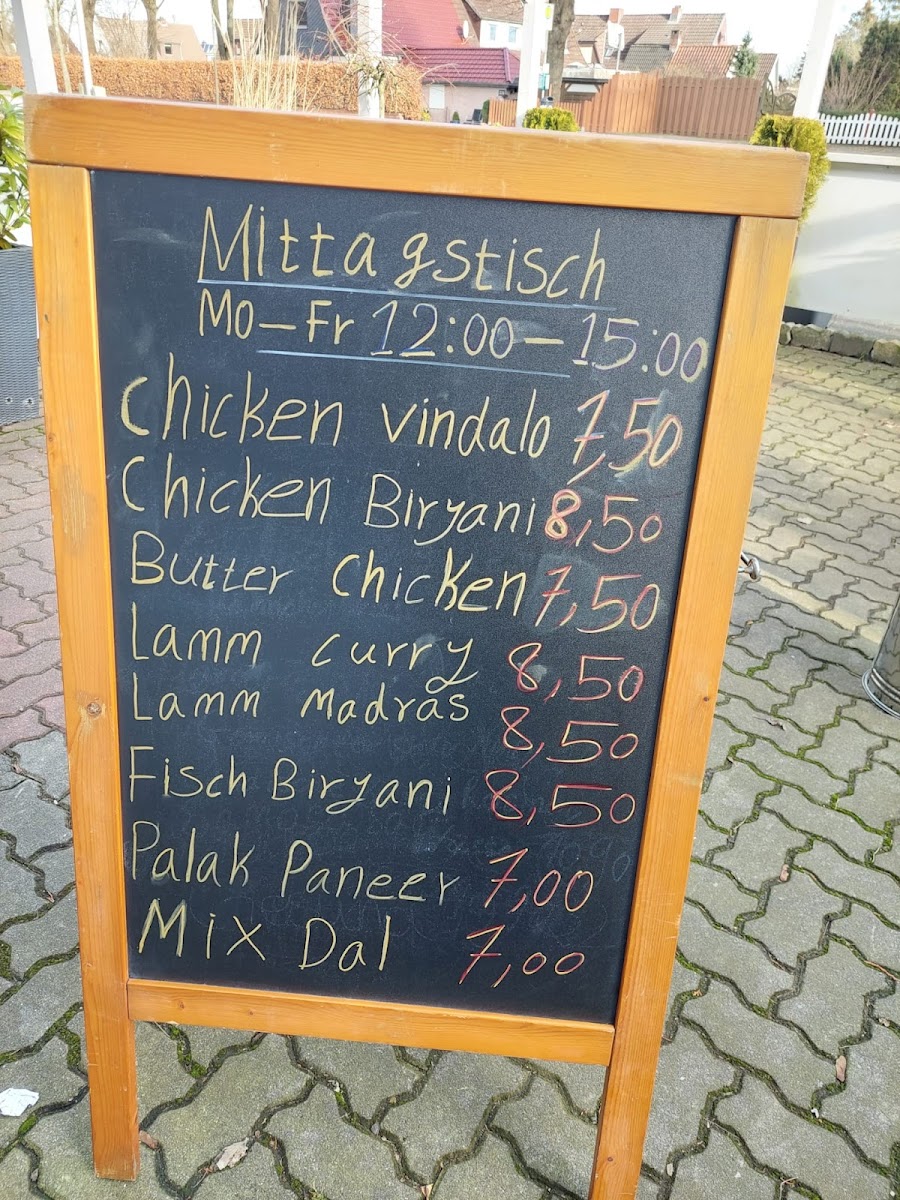 Mittagstisch
Mo-Fr 12:00-15:00
Chicken vindalo 7,50
Chicken Biryani 8,50
Butter Chicken 7,50
Lamm curry 8,50
Lamm Madras 8,50
Fisch Biryani 8,50
Palak Paneer 7,00
Mix Dal 7,00